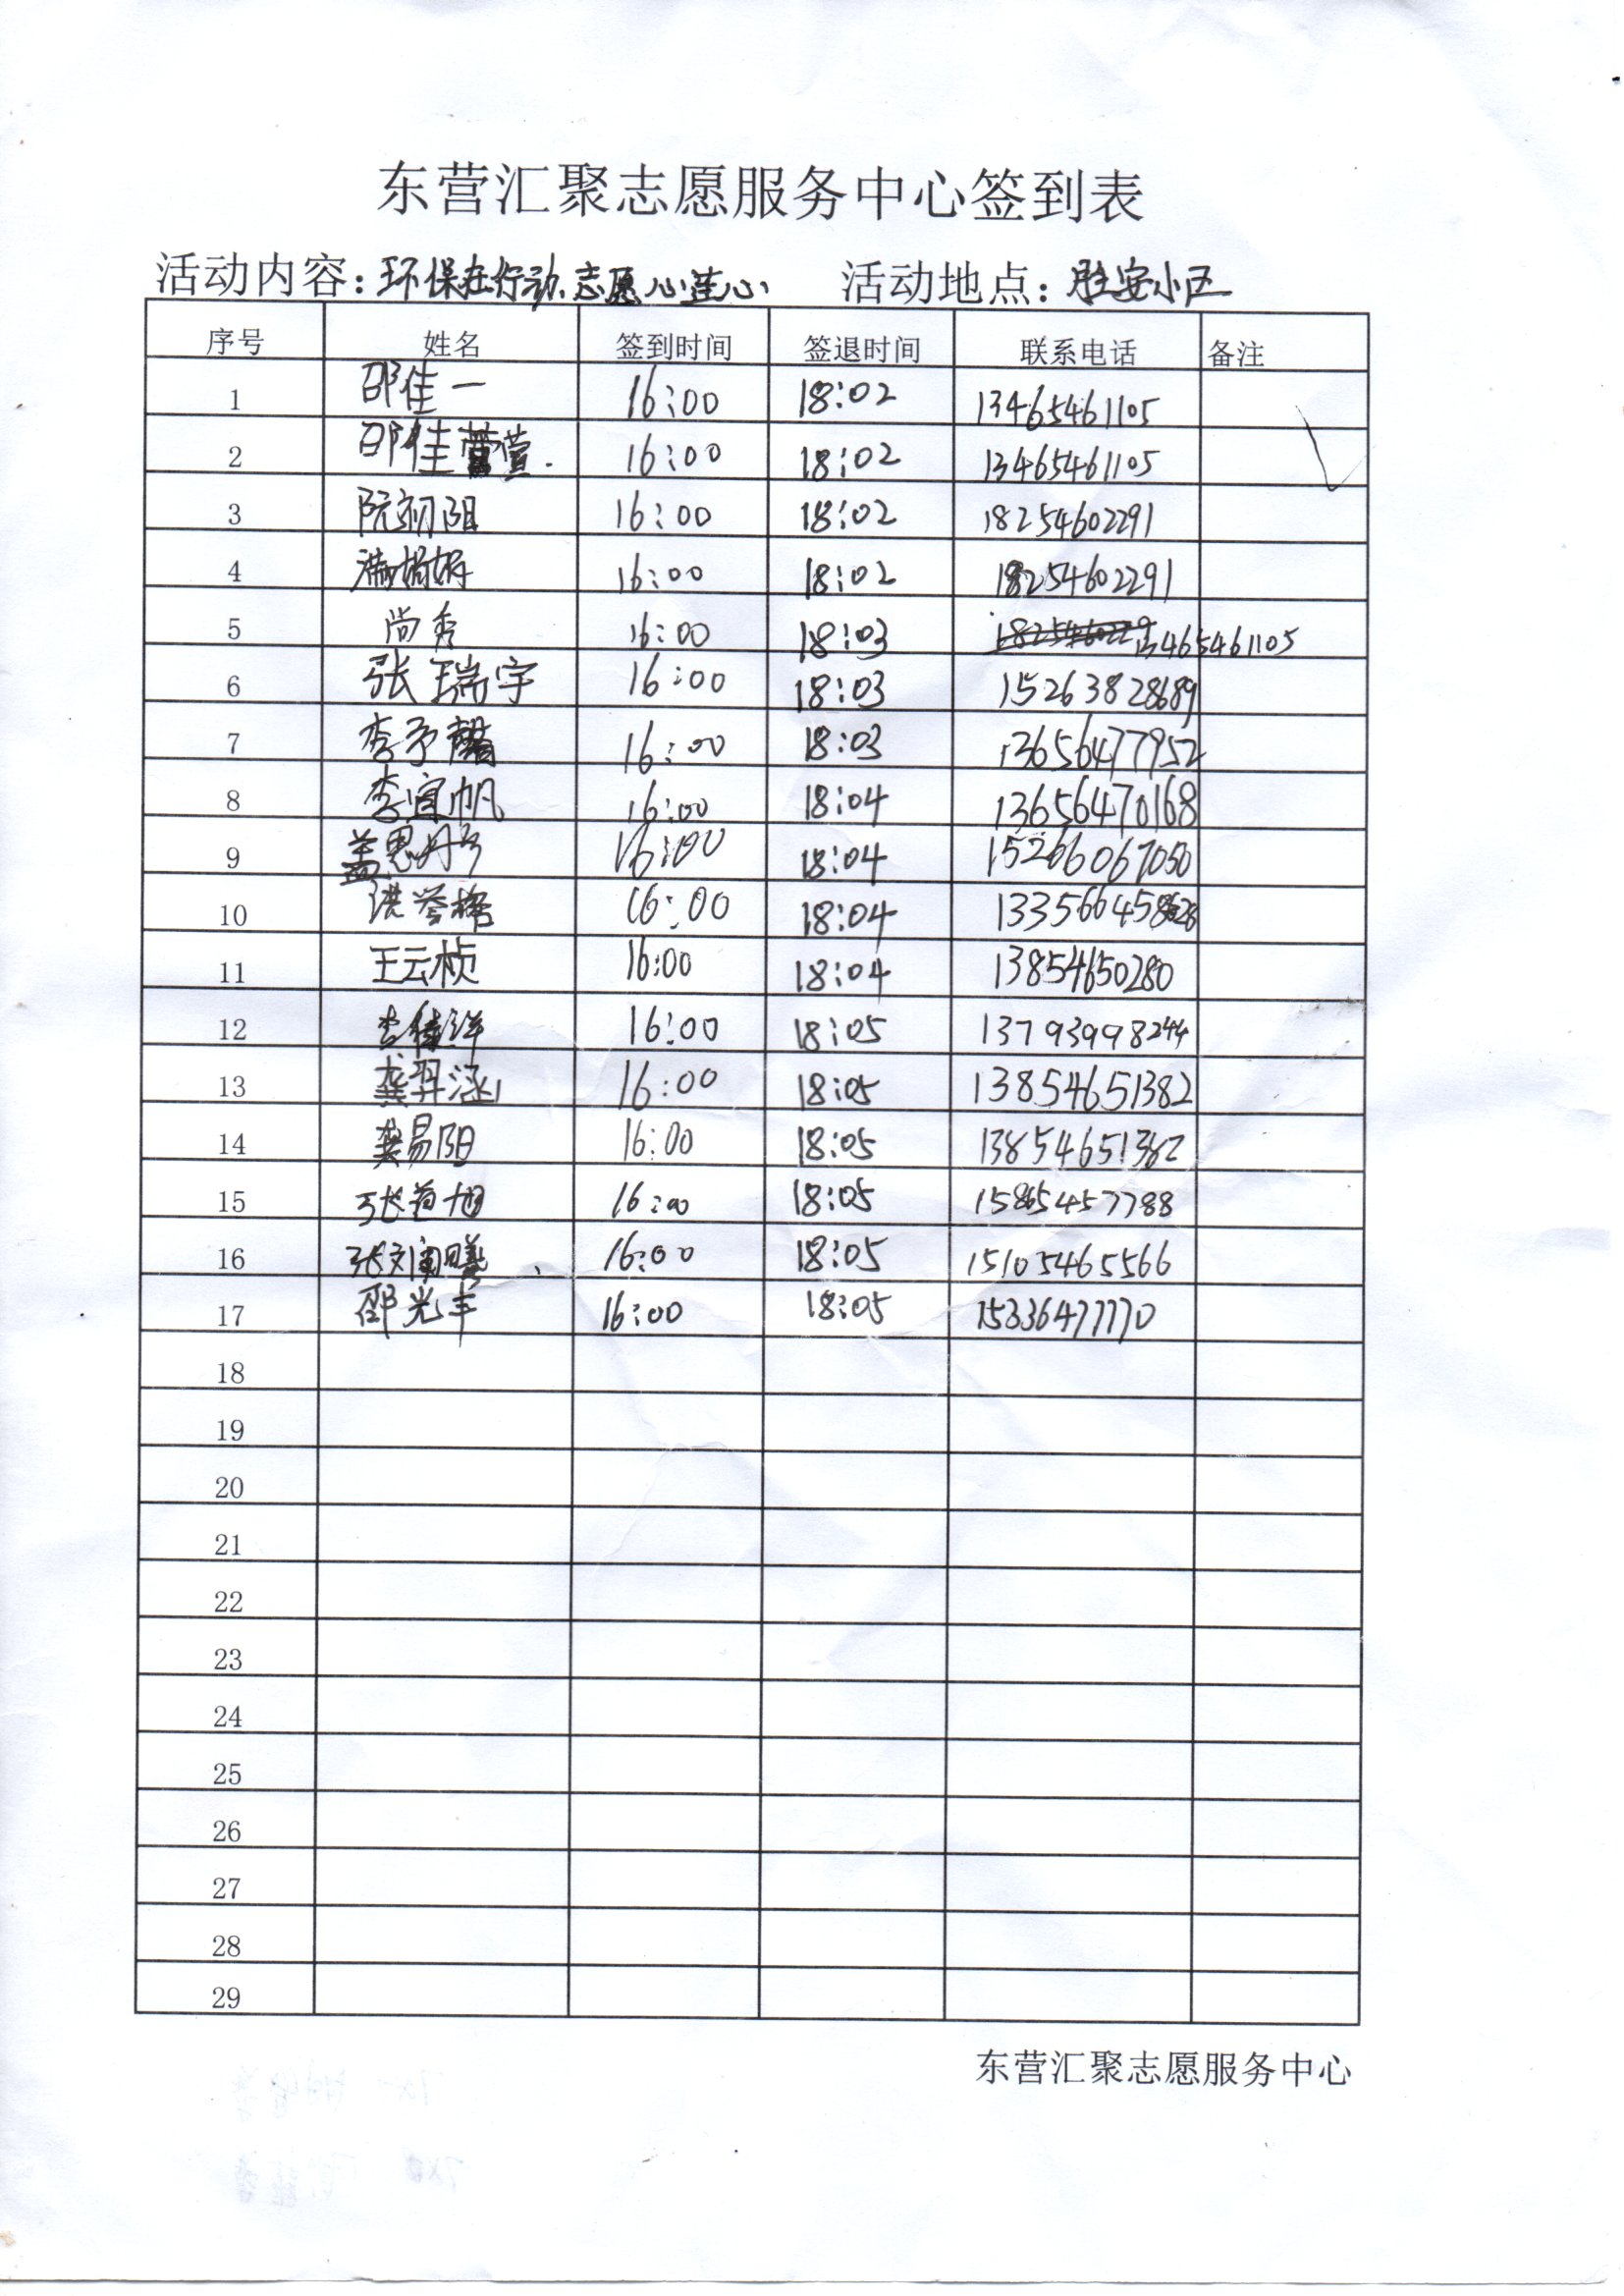 东营汇聚志愿服务中心签到表
活动内容：环保在行动 志愿心连心 活动地点：胜安小区
序号 姓名 签到时间 签退时间 联系电话 备注
1 邵佳一 16:00 18:02 13465461105
2 邵佳萱 16:00 18:02 13465461105
3 阮初阳 16:00 18:02 18254602291
4 16:00 18:02 18254602291
5 尚秀 16:00 18:03 13465461105
6 张瑞宇 16:00 18:03 15263828689
7 李予馨 16:00 18:03 13656477952
8 李宜帆 16:00 18:04 13656470168
9 盖思妤 16:00 18:04 15266067050
10 洪誉格 16:00 18:04
11 王云桢 16:00 18:04 13854650280
12 李佳洋 16:00 18:05 13793998244
13 龚羿涵 16:00 18:05 13854651382
14 龚易阳 16:00 18:05 13854651382
15 16:00 18:05 15865457788
16 16:00 18:05 15105465566
17 邵光丰 16:00 18:05 15336477770
18
19
20
21
22
23
24
25
26
27
28
29
东营汇聚志愿服务中心